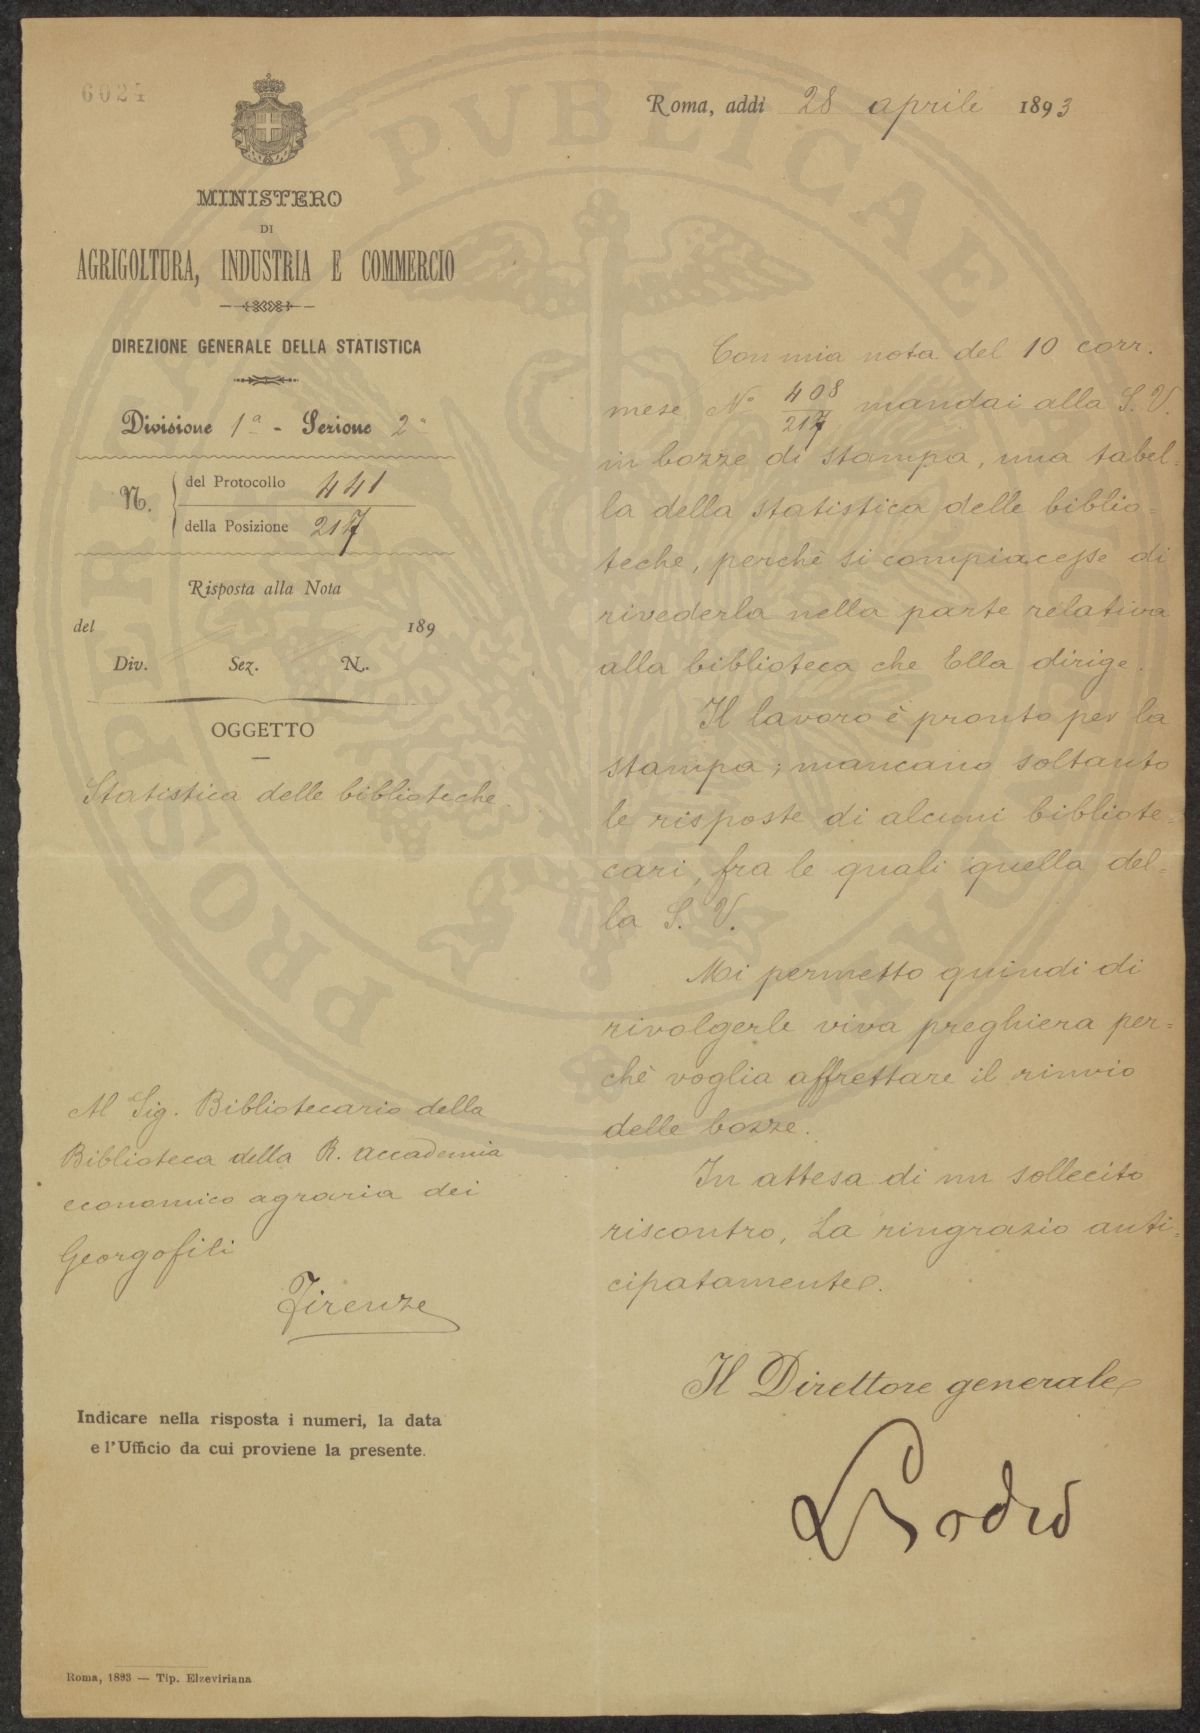 6024
MINISTERO
DI
AGRICOLTURA, INDUSTRIA E COMMERCIO
DIREZIONE GENERALE DELLA STATISTICA
Divisione 1ª - Sezione 2ª
N. del Protocollo 441
della Posizione 217
Risposta alla Nota
del 189
Div. Sez. N.
OGGETTO
Statistica delle biblioteche.
Al Sig. Bibliotecario della
Biblioteca della R. Accademia
economico agraria dei
Georgofili
Firenze
Indicare nella risposta i numeri, la data
e l'Ufficio da cui proviene la presente.
Roma, 1893 — Tip. Elzeviriana
Roma, addì 28 aprile 1893
Con mia nota del 10 corr.
mese Nº 408/217 mandai alla S. V.
in bozze di stampa, una tabel=
la della statistica delle biblio=
teche, perchè si compiacesse di
rivederla nella parte relativa
alla biblioteca che Ella dirige.
Il lavoro è pronto per la
stampa; mancano soltanto
le risposte di alcuni bibliote=
cari, fra le quali quella del=
la S. V.
Mi permetto quindi di
rivolgerle viva preghiera per=
chè voglia affrettare il rinvio
delle bozze.
In attesa di un sollecito
riscontro, La ringrazio anti=
cipatamente.
Il Direttore generale
LBodio
PROSPERITATI PVBLICAE AVGENDAE